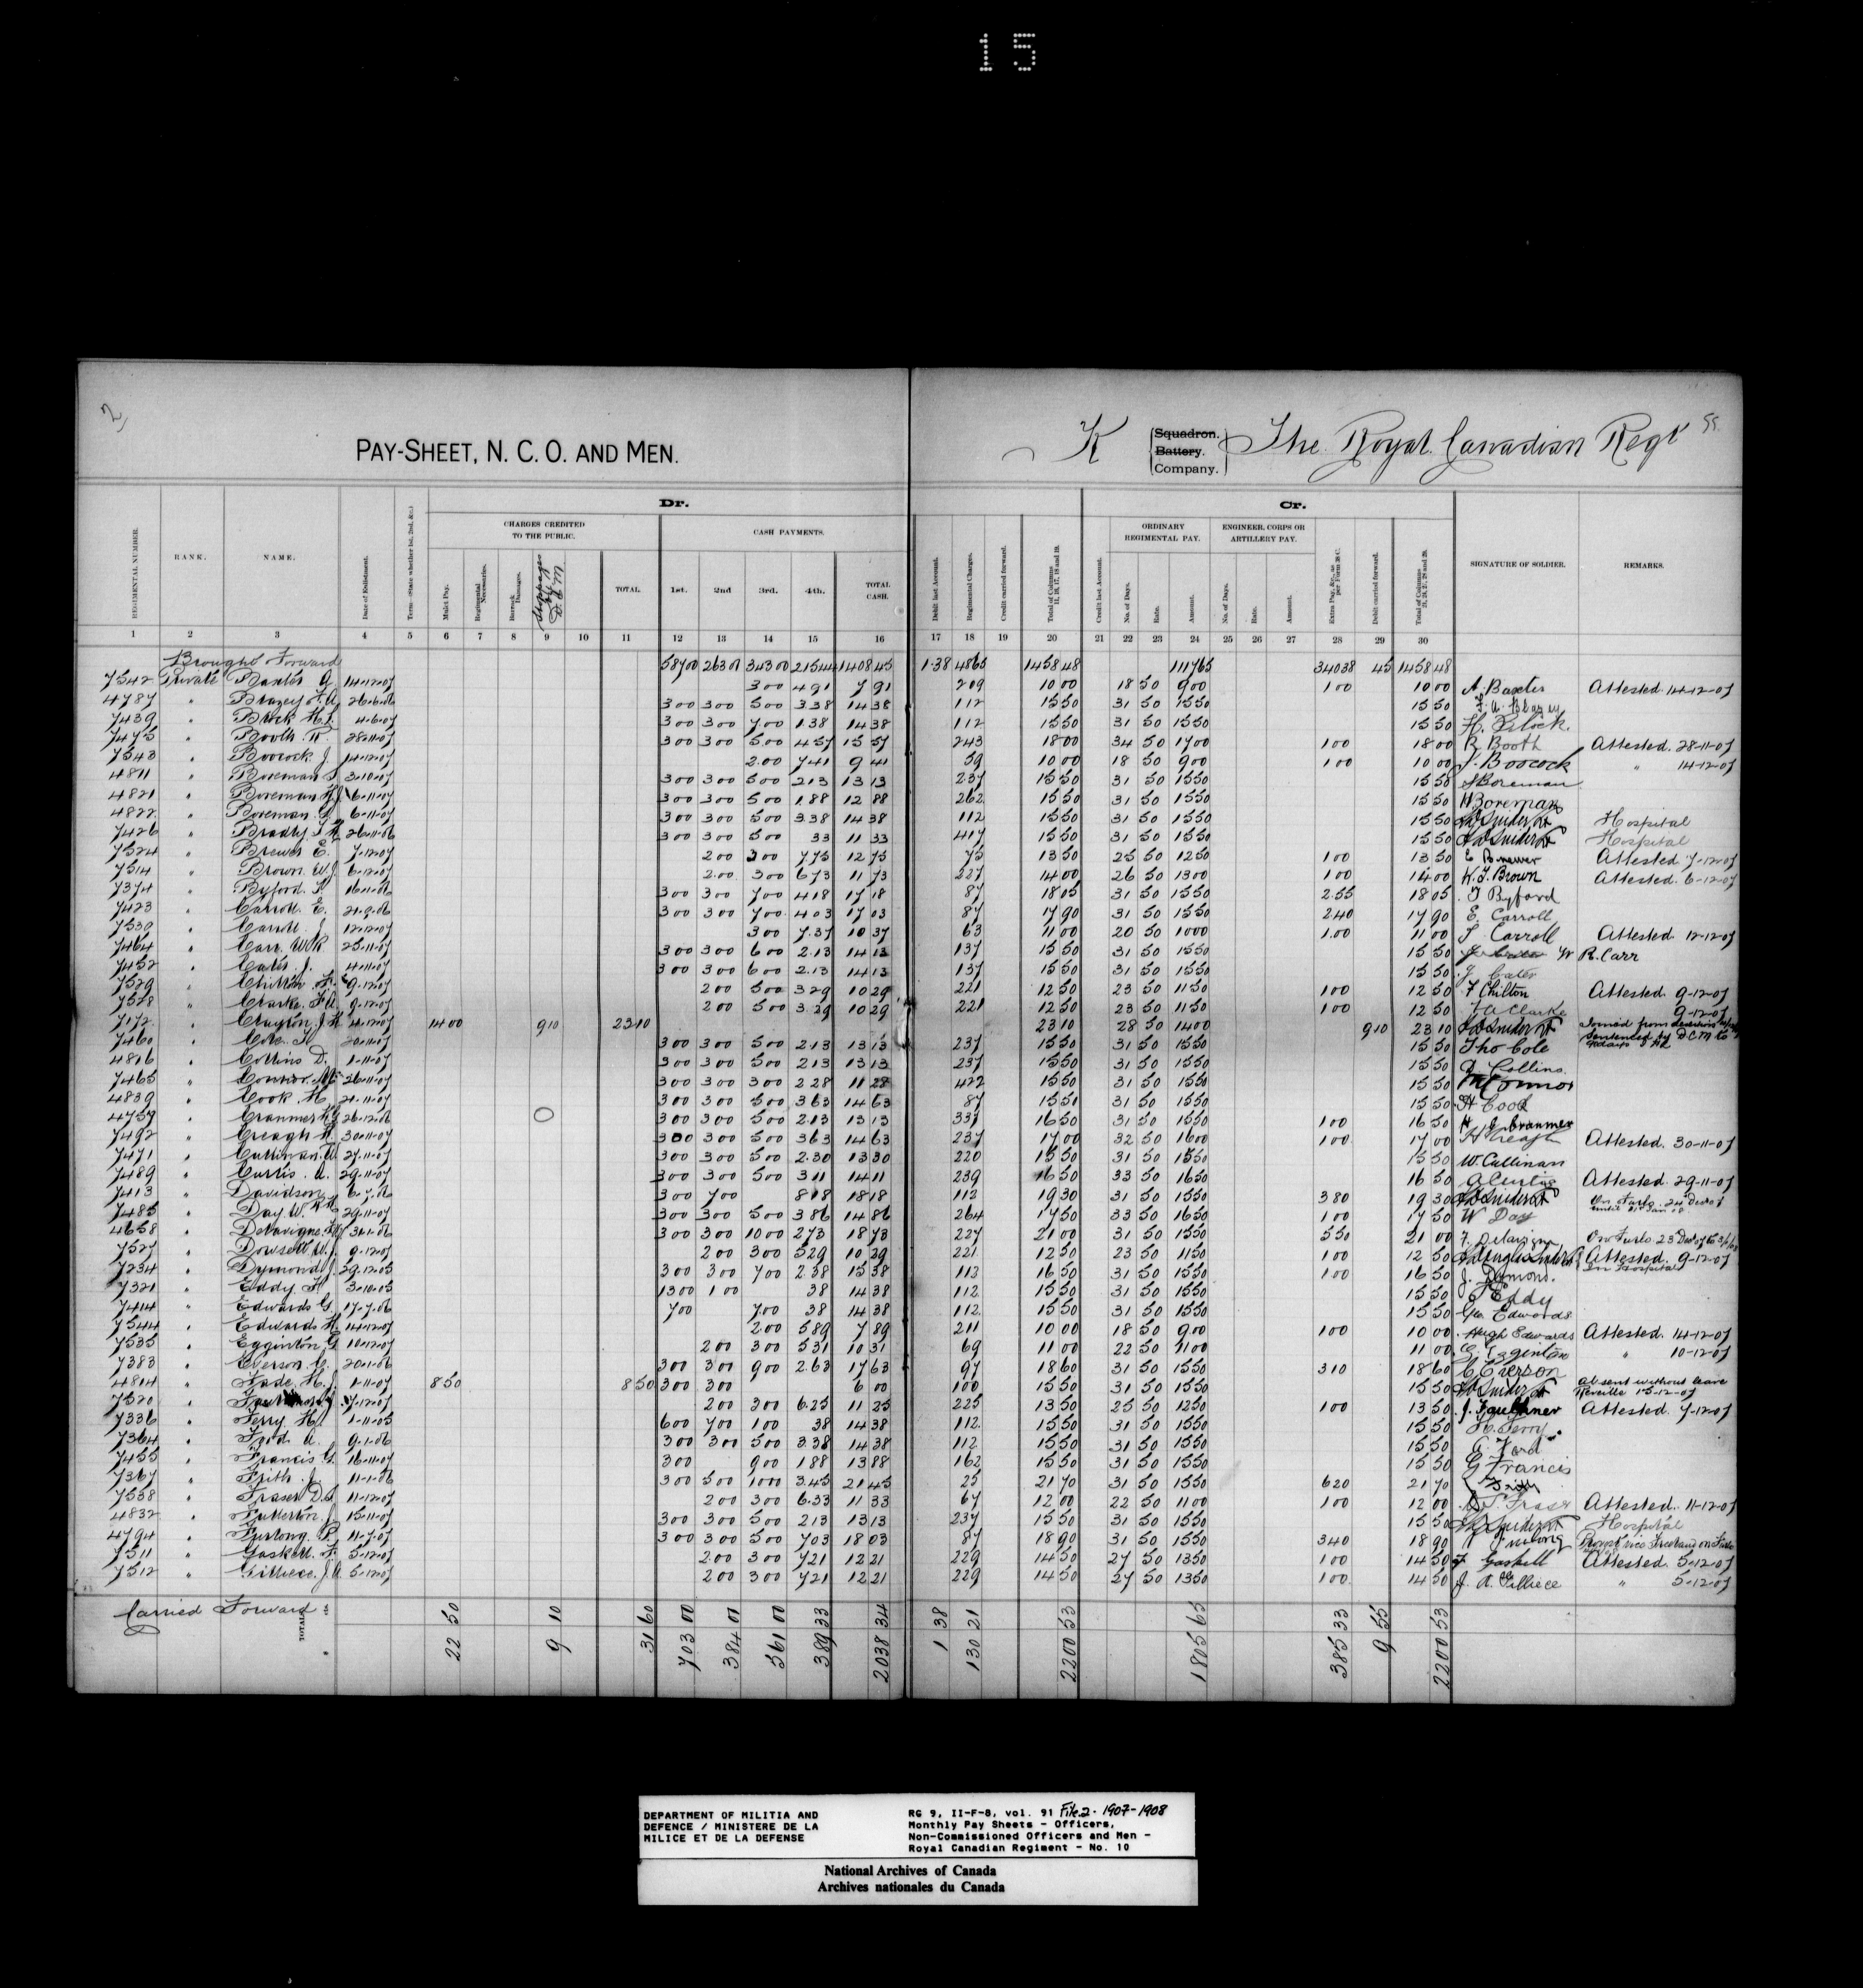 15
2,
PAY-SHEET, N. C. O. AND MEN.
K Squadron. Battery. Company. The Royal Canadian Regt 55.
Dr. Cr.
CHARGES CREDITED TO THE PUBLIC. CASH PAYMENTS. ORDINARY REGIMENTAL PAY. ENGINEER, CORPS OR ARTILLERY PAY.
REGIMENTAL NUMBER. RANK. NAME. Date of Enlistment. Term—(State whether 1st, 2nd, &c.) Mulct Pay. Regimental Necessaries. Barrack Damages. Stoppages by D.C.M TOTAL 1st. 2nd 3rd. 4th. TOTAL CASH. Debit last Account. Regimental Charges. Credit carried forward. Total of Columns 11, 16, 17, 18 and 19. Credit last Account. No. of Days. Rate. Amount. No. of Days. Rate. Amount. Extra Pay, &c., as per Form 38 C. Debit carried forward. Total of Columns 21, 24, 27, 28 and 29. SIGNATURE OF SOLDIER. REMARKS.
1 2 3 4 5 6 7 8 9 10 11 12 13 14 15 16 17 18 19 20 21 22 23 24 25 26 27 28 29 30
Brought Forward 587 00 263 01 343 00 215 44 1408 45 1 38 48 65 1458 48 1117 65 340 38 45 1458 48
7542 Private Baxter A. 14-12-07 3 00 4 91 7 91 2 09 10 00 18 50 9 00 1 00 10 00 A. Baxter Attested 14-12-07
4787 " 26-6-06 3 00 3 00 5 00 3 38 14 38 1 12 15 50 31 50 15 50 15 50
7439 " 4-6-07 3 00 3 00 7 00 1 38 14 38 1 12 15 50 31 50 15 50 15 50
7475 " Booth R. 28-11-07 3 00 3 00 5 00 4 57 15 57 2 43 18 00 34 50 17 00 1 00 18 00 R Booth Attested. 28-11-07
7543 " Boocock J. 14-12-07 2 00 7 41 9 41 59 10 00 18 50 9 00 1 00 10 00 J. Boocock " 14-12-07
4811 " Boreman S 3-10-07 3 00 3 00 5 00 2 13 13 13 2 37 15 50 31 50 15 50 15 50 S Boreman
4821 " Boreman H.J. 6-11-07 3 00 3 00 5 00 1 88 12 88 2 62 15 50 31 50 15 50 15 50 H Boreman
4822 " Boreman G. 6-11-07 3 00 3 00 5 00 3 38 14 38 1 12 15 50 31 50 15 50 15 50 Hospital
7426 " Bradly 26-11-06 3 00 3 00 5 00 33 11 33 4 17 15 50 31 50 15 50 15 50 Hospital
7524 " Brewer E. 7-12-07 2 00 3 00 7 75 12 75 75 13 50 25 50 12 50 1 00 13 50 E Brewer Attested 7-12-07
7514 " Brown W.J. 6-12-07 2 00 3 00 6 73 11 73 2 27 14 00 26 50 13 00 1 00 14 00 W. J. Brown Attested. 6-12-07
7374 " Byford 16-1-06 3 00 3 00 7 00 4 18 17 18 87 18 05 31 50 15 50 2 55 18 05 Byford
7423 " Carroll E. 21-9-06 3 00 3 00 7 00 4 03 17 03 87 17 90 31 50 15 50 2 40 17 90 E. Carroll
7530 " Carroll J. 12-12-07 3 00 7 37 10 37 63 11 00 20 50 10 00 1 00 11 00 Carroll Attested. 12-12-07
7464 " Carr W.R. 25-11-07 3 00 3 00 6 00 2 13 14 13 1 37 15 50 31 50 15 50 15 50 W R. Carr
7452 " Cater J. 4-11-07 3 00 3 00 6 00 2 13 14 13 1 37 15 50 31 50 15 50 15 50 J Cater
7529 " Chilton F. 9-12-07 2 00 5 00 3 29 10 29 2 21 12 50 23 50 11 50 1 00 12 50 F Chilton Attested 9-12-07
7528 " Clarke F.A. 9-12-07 2 00 5 00 3 29 10 29 2 21 12 50 23 50 11 50 1 00 12 50 F A Clarke 9-12-07
7172 " Clayton J. H 4-12-07 14 00 9 10 23 10 23 10 28 50 14 00 9 10 23 10 Joined from desertion Sentenced by D.C.M to
7460 " Cole 20-11-07 3 00 3 00 5 00 2 13 13 13 2 37 15 50 31 50 15 50 15 50 Tho Cole
4816 " Collins D. 1-11-07 3 00 3 00 5 00 2 13 13 13 2 37 15 50 31 50 15 50 15 50 D. Collins
7465 " Connor M. 26-11-07 3 00 3 00 3 00 2 28 11 28 4 22 15 50 31 50 15 50 15 50 M Connor
4839 " Cook H. 21-11-07 3 00 3 00 5 00 3 63 14 63 87 15 50 31 50 15 50 15 50 H Cook
4757 " Cranmer H.G. 26-12-06 3 00 3 00 5 00 2 13 13 13 3 37 16 50 31 50 15 50 1 00 16 50 H. G. Cranmer
7492 " Creagh H. 30-11-07 3 00 3 00 5 00 3 63 14 63 2 37 17 00 32 50 16 00 1 00 17 00 H Creagh Attested. 30-11-07
7471 " Cullinan W 27-11-07 3 00 3 00 5 00 2 30 13 30 2 20 15 50 31 50 15 50 15 50 W. Cullinan
7489 " Curtis. A. 29-11-07 3 00 3 00 5 00 3 11 14 11 2 39 16 50 33 50 16 50 16 50 A Curtis Attested 29-11-07
7413 " Davidson 6-7-06 3 00 7 00 8 18 18 18 1 12 19 30 31 50 15 50 3 80 19 30 On Furlo. 24 Dec 07 until
7485 " Day W. 29-11-07 3 00 3 00 5 00 3 86 14 86 2 64 17 50 33 50 16 50 1 00 17 50 W Day
4658 " Delavigne 30-1-06 3 00 3 00 10 00 2 73 18 73 2 27 21 00 31 50 15 50 5 50 21 00 On Furlo. 23 Dec 07 to
7527 " Dowsett W.J. 9-12-07 2 00 3 00 5 29 10 29 2 21 12 50 23 50 11 50 1 00 12 50 Attested. 9-12-07 In Hospital
7234 " Dymond J. 29-12-05 3 00 3 00 7 00 2 38 15 38 1 12 16 50 31 50 15 50 1 00 16 50 J. Dymond.
7321 " Eddy 3-10-05 13 00 1 00 38 14 38 1 12 15 50 31 50 15 50 15 50 Eddy
7414 " Edwards G. 17-7-06 7 00 7 00 38 14 38 1 12 15 50 31 50 15 50 15 50 Geo Edwards
7544 " Edwards H. 14-12-07 2 00 5 89 7 89 2 11 10 00 18 50 9 00 1 00 10 00 Hugh Edwards Attested. 14-12-07
7535 " Egginton G 10-12-07 2 00 3 00 5 31 10 31 69 11 00 22 50 11 00 11 00 G. Egginton " 10-12-07
7383 " Everson C. 20-1-06 3 00 3 00 9 00 2 63 17 63 97 18 60 31 50 15 50 3 10 18 60 C Everson
4814 " Fade H. J. 1-11-07 8 50 8 50 3 00 3 00 6 00 1 00 15 50 31 50 15 50 15 50 absent without leave Reveille 15-12-07
7520 " 7-12-07 2 00 3 00 6 25 11 25 2 25 13 50 25 50 12 50 1 00 13 50 J. Faulkner Attested. 7-12-07
7336 " Ferry H. 1-11-05 6 00 7 00 1 00 38 14 38 1 12 15 50 31 50 15 50 15 50 H. Ferry
7364 " Ford A. 9-1-06 3 00 3 00 5 00 3 38 14 38 1 12 15 50 31 50 15 50 15 50 Ford
7455 " Francis G. 16-11-07 3 00 9 00 1 88 13 88 1 62 15 50 31 50 15 50 15 50 G Francis
7367 " Frith J. 11-1-06 3 00 5 00 10 00 3 45 21 45 25 21 70 31 50 15 50 6 20 21 70 Frith
7538 " Fraser D.S. 11-12-07 2 00 3 00 6 33 11 33 67 12 00 22 50 11 00 1 00 12 00 Fraser Attested. 11-12-07
4832 " Fullerton J. 15-11-07 3 00 3 00 5 00 2 13 13 13 2 37 15 50 31 50 15 50 15 50 Hospital
4794 " Furlong P. 11-7-07 3 00 3 00 5 00 7 03 18 03 87 18 90 31 50 15 50 3 40 18 90 Furlong
7511 " Gaskell F. 5-12-07 2 00 3 00 7 21 12 21 2 29 14 50 27 50 13 50 1 00 14 50 F Gaskell Attested. 5-12-07
7512 " Gilliece. J.A 5-12-07 2 00 3 00 7 21 12 21 2 29 14 50 27 50 13 50 1 00 14 50 J. A. Gilliece " 5-12-07
Carried Forward TOTAL 22 50 9 10 31 60 703 00 384 01 561 00 389 33 2038 34 1 38 130 21 2200 53 1805 65 385 33 9 55 2200 53
DEPARTMENT OF MILITIA AND
DEFENCE / MINISTERE DE LA
MILICE ET DE LA DEFENSE
RG 9, II-F-8, vol. 91 File.2 · 1907-1908
Monthly Pay Sheets - Officers,
Non-Commissioned Officers and Men -
Royal Canadian Regiment - No. 10
National Archives of Canada
Archives nationales du Canada